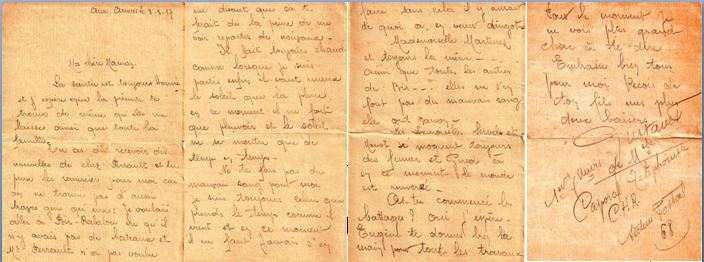 Aux Armées le 8-8-17
Ma chère Maman,
La santé est toujours bonne
et j'espère que la présente te
trouve de même qu'elle me
laisse ainsi que toute la
famille.
Tu as dû recevoir des
nouvelles de chez Perrault et tu
peux les remercier pour moi car
on ne trouve pas d'aussi
braves gens que eux: je voulais
aller à Bois-Rabalou vu qu'il
n'y avais pas de bateaux et
Mr Perrault n'a pas voulu
me disant que ça te
ferait de la peine de me
voir repartir de nouveau.
Il fait toujours chaud
comme lorsque je suis
partis enfin il vaut mieux
le soleil que la pluie,
en ce moment il ne fait
que pleuvoir et le soleil
ne se montre que de
temp en temps.
Ne te fais pas du
mauvais sang pour moi
je suis toujours celui qui
prends le temp comme il
vient et en ce moment
il en faut jamais s'en
faire sans cela il y aurait
de quoi à en venir dingot
Mademoiselle Martinet
est toujours la même
ainsi que toutes les autres
de elles ne s'en
font pas du mauvais sang
elle ont raison.
Les demoiselles
se moquent toujours
des femmes et
en ce moment le monde
est renversé.
As-tu commencé les
battages? Oui j'espère.
Eugène te donne bien la
main pour tout les travaux
Pour le moment je
ne vois plus grand
chose à te dire
Embrasse bien tous
pour moi. Reçois de
ton fils ses plus
doux baisers
Gustave
de
Caporal Téléphoniste
C.H.R.
Secteur Postal
68